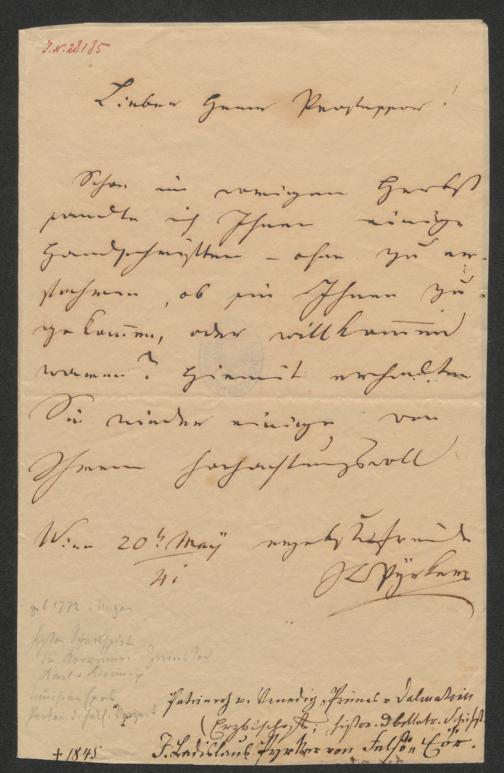 J.N. 28185
Lieber Herr Professor!
Schon im vorigen Herbst
sandte ich Ihnen einige
Handschriften – ohne zu er-
fahren, ob sie Ihnen zu-
gekom̄en, oder willkom̄en
waren? Hiemit erhalten
Sie wieder einige von
Ihrem hochachtungsvoll
Wien 20t May ergebsten Freunde
41
JLPyrker
geb 1772 Ungar
Patriarch v. Venedig, Primas v Dalmatien
(Erzbischof), histor. d
J. Ladislaus Pyrker von Felsőe Eör.
† 1845